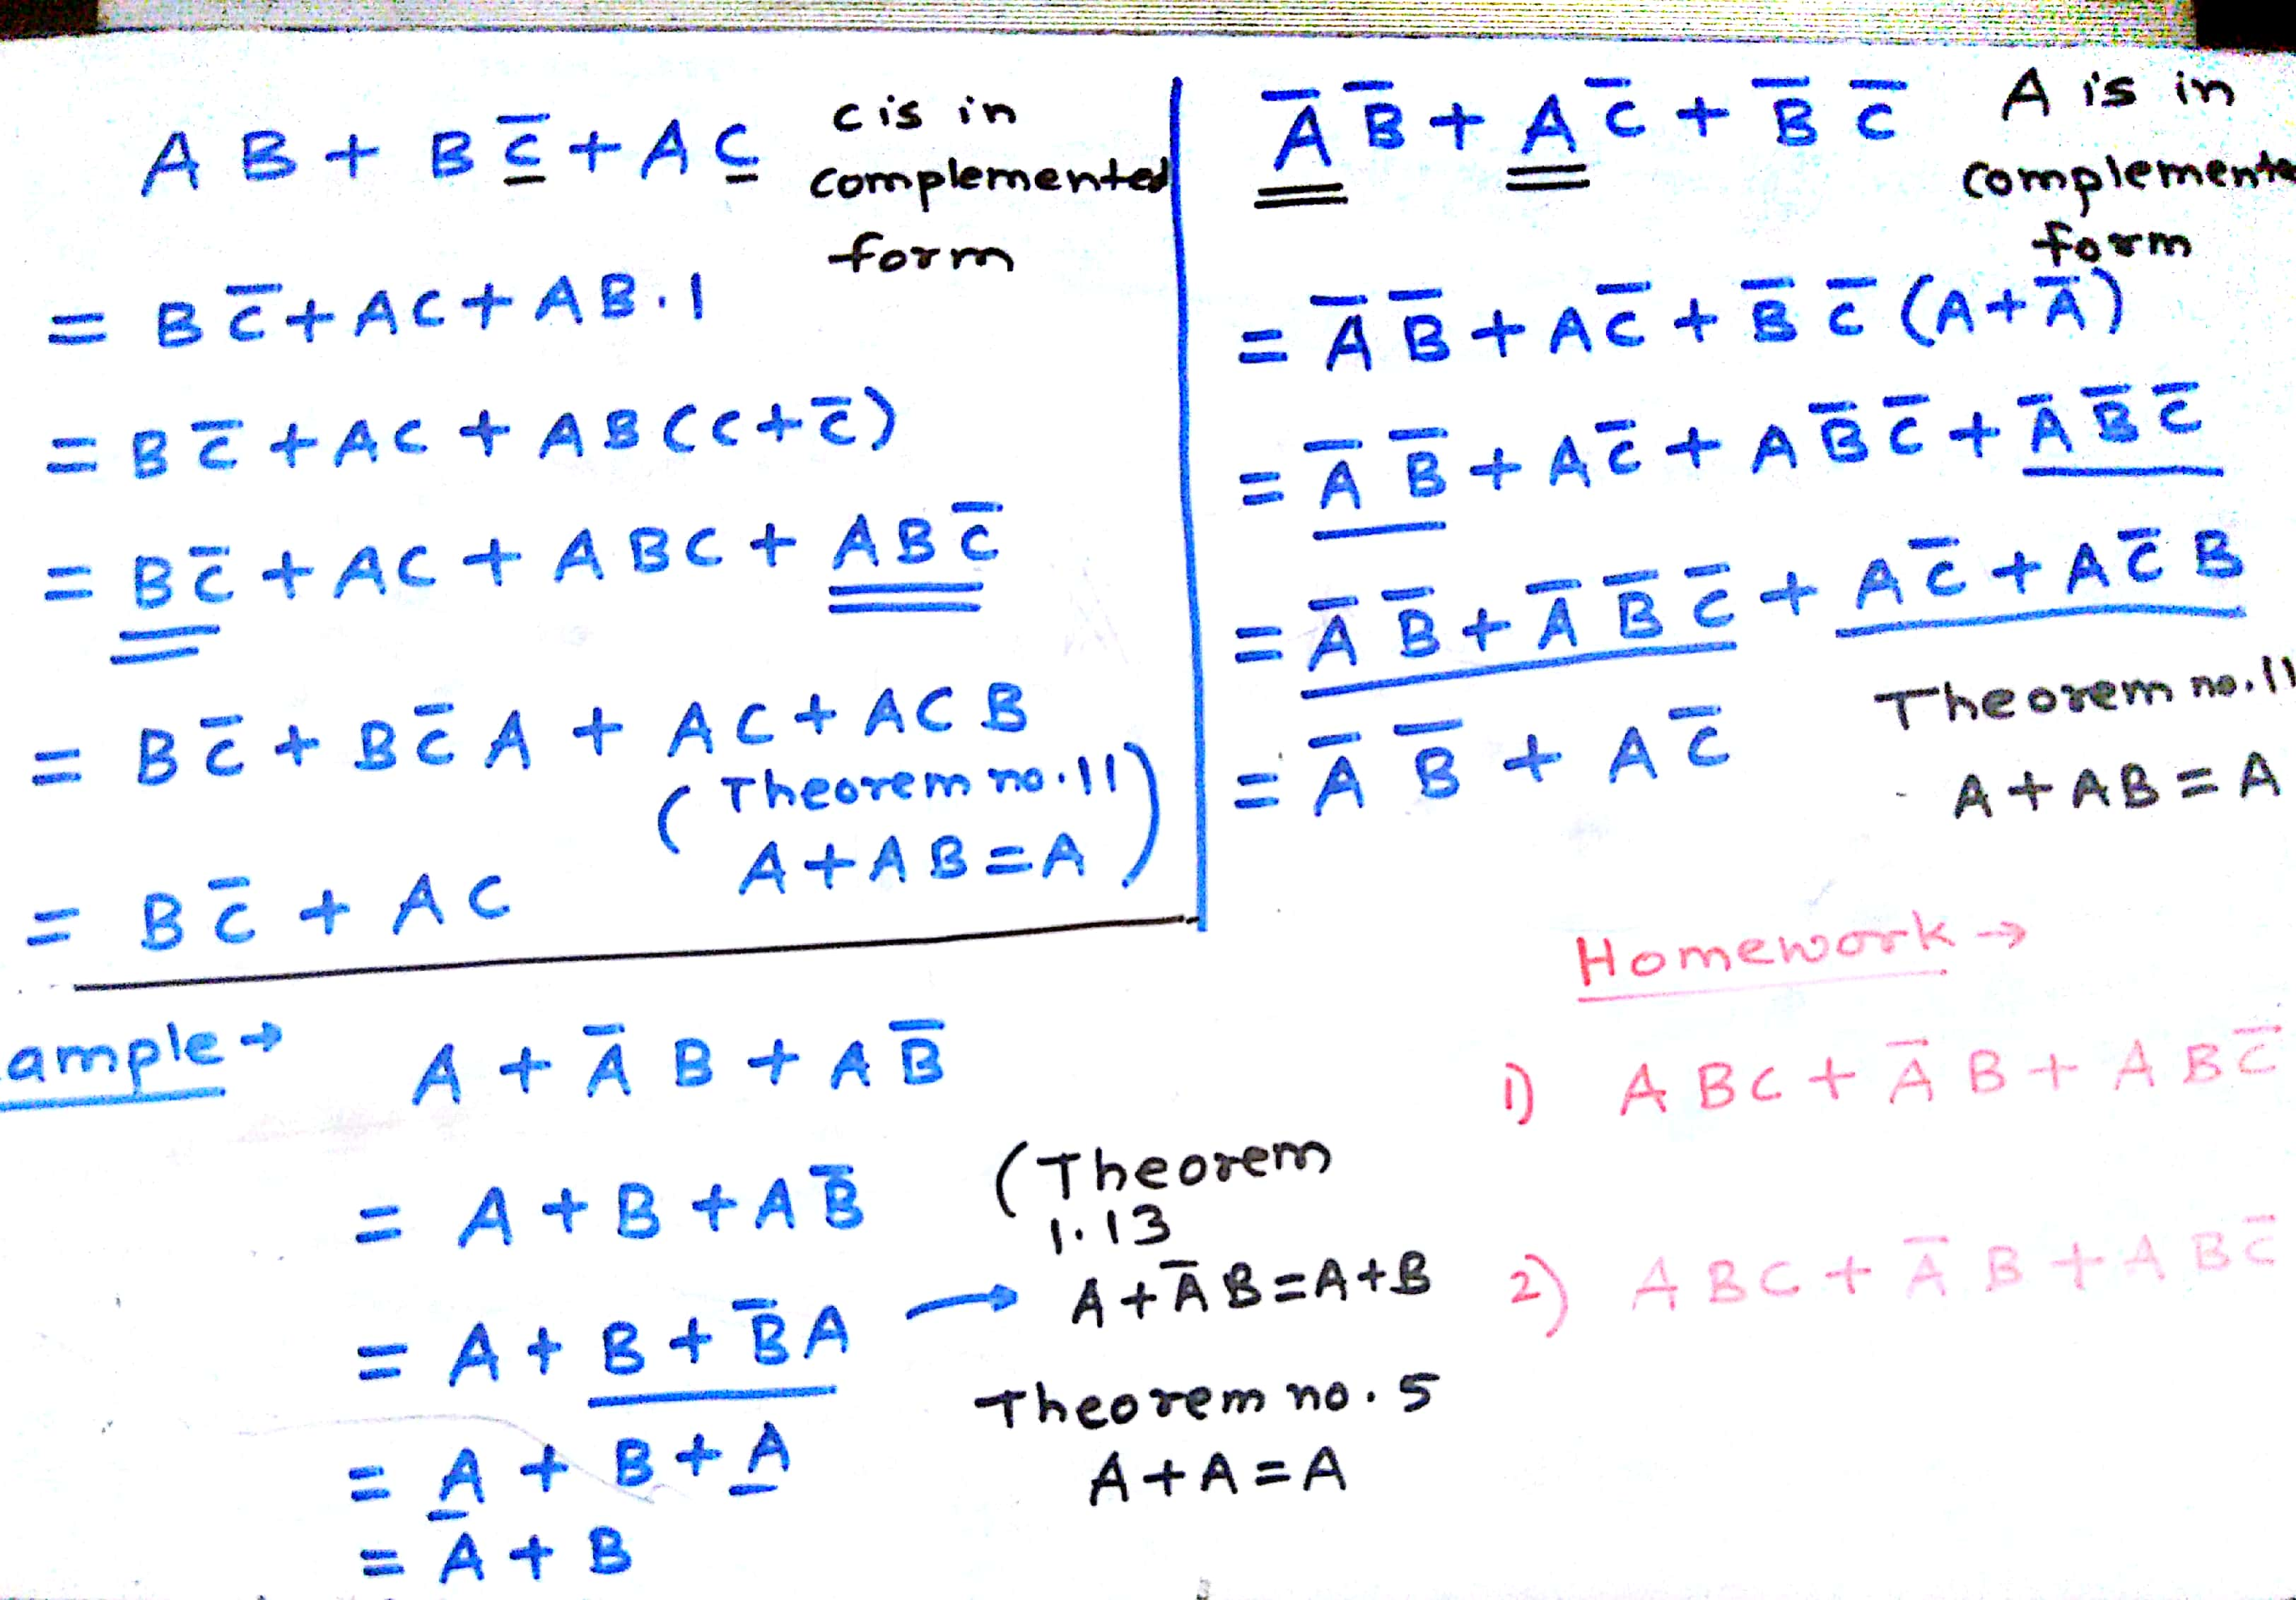 A B + B C̅ + A C
C is in
complemented
form
= B C̅ + A C + A B . 1
= B C̅ + A C + A B ( C + C̅ )
= B C̅ + A C + A B C + A B C̅
= B C̅ + B C̅ A + A C + A C B
( Theorem no. 11
A + A B = A )
= B C̅ + A C
A̅ B̅ + A C̅ + B̅ C̅
A is in
complemente
form
= A̅ B̅ + A C̅ + B̅ C̅ ( A + A̅ )
= A̅ B̅ + A C̅ + A B̅ C̅ + A̅ B̅ C̅
= A̅ B̅ + A̅ B̅ C̅ + A C̅ + A C̅ B
Theorem no. 11
= A̅ B̅ + A C̅
A + A B = A
ample → A + A̅ B + A B̅
= A + B + A B̅
( Theorem
1.13
= A + B + B̅ A → A + A̅ B = A + B
Theorem no. 5
= A + B + A
A + A = A
= A + B
Homework →
1) A B C + A̅ B + A B C̅
2) A B C + A̅ B + A B C̅